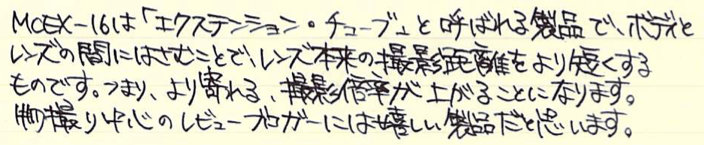 MCEX-16は「エクステンション・チューブ」と呼ばれる製品で、ボディと
レンズの間にはさむことで、レンズ本来の撮影距離をより短くする
ものです。つまり、より寄れる、撮影倍率が上がることになります。
物撮り中心のレビューブロガーには嬉しい製品だと思います。